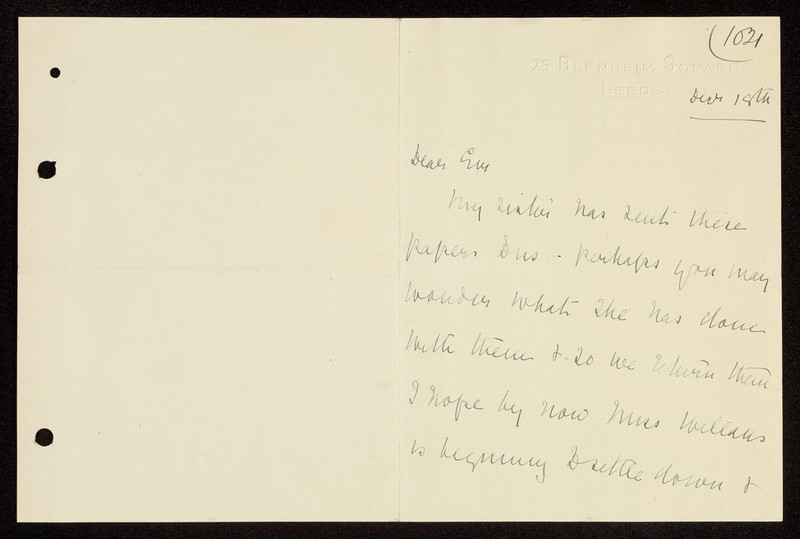 (1031
25, BLENHEIM SQUARE,
LEEDS.
Decr 18th
Dear Sir
My sister has sent these
papers to us - perhaps you may
wonder what she has done
with them & so we return them -
I hope by now Miss Willans
is beginning to settle down &